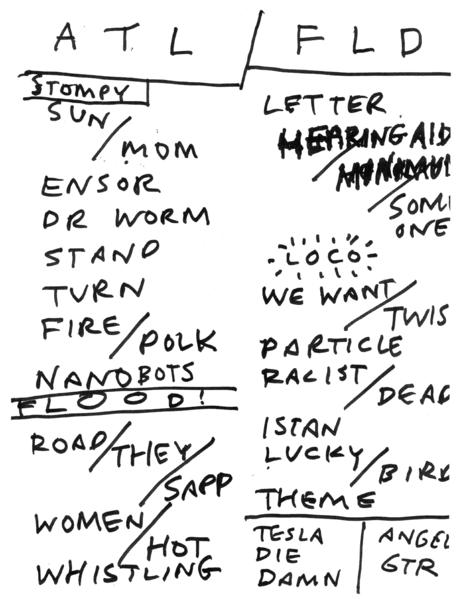 ATL / FLD
STOMPY
SUN / MOM
ENSOR
DR WORM
STAND
TURN
FIRE / POLK
NANOBOTS
FLOOD!
ROAD / THEY / SAPP
WOMEN / HOT
WHISTLING
LETTER
HEARING AID /
/ SOMI
ONE
LOCO
WE WANT / TWIS
PARTICLE
RACIST / DEAD
ISTAN
LUCKY / BIRD
THEME
TESLA
DIE
DAMN
ANGEL
GTR